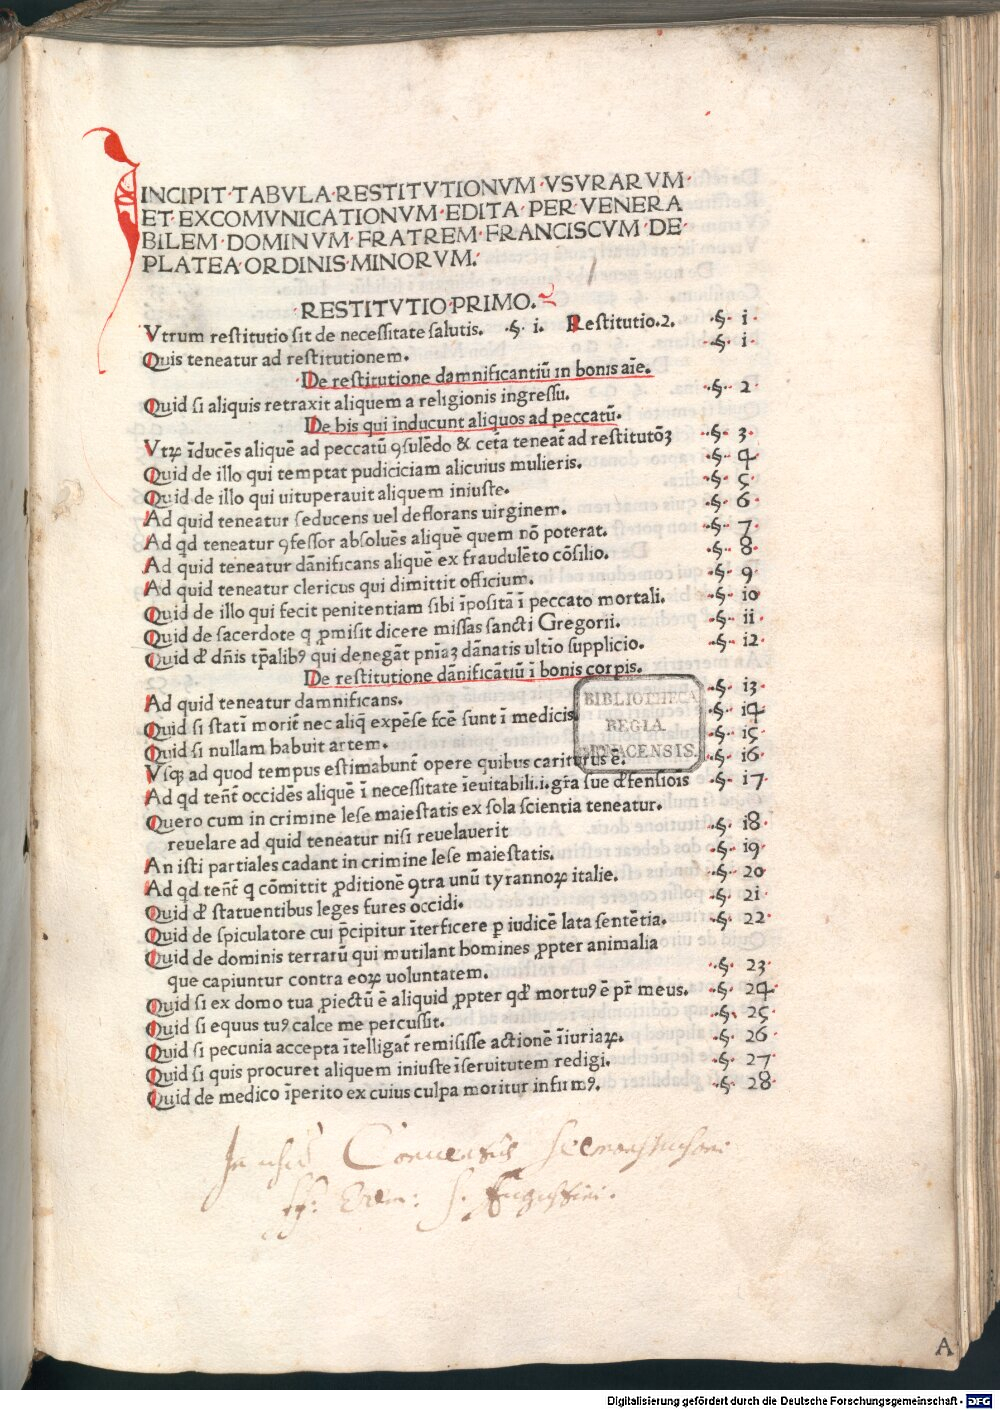 INCIPIT·TABVLA·RESTITVTIONVM·VSVRARVM·
ET·EXCOMVNICATIONVM·EDITA·PER·VENERA
BILEM·DOMINVM·FRATREM·FRANCISCVM·DE·
PLATEA·ORDINIS·MINORVM.
RESTITVTIO·PRIMO.
Vtrum restitutio sit de necessitate salutis. ·§· i. Restitutio.2. ·§· i·
Quis teneatur ad restitutionem. ·§· i·
De restitutione damnificantiū in bonis aīe.
Quid si aliquis retraxit aliquem a religionis ingressu. ·§· 2·
De his qui inducunt aliquos ad peccatū.
Vtꝝ īducēs aliquē ad peccatū ꝯsulēdo & cet̄a teneat̄ ad restitutōꝫ ·§· 3·
Quid de illo qui temptat pudiciciam alicuius mulieris. ·§· 4·
Quid de illo qui uituperauit aliquem iniuste. ·§· 5·
Ad quid teneatur seducens uel deflorans uirginem. ·§· 6·
Ad qd teneatur ꝯfessor absoluēs aliquē quem nō poterat. ·§· 7·
Ad quid teneatur dānificans aliquē ex fraudulēto cōsilio. ·§· 8·
Ad quid teneatur clericus qui dimittit officium. ·§· 9·
Quid de illo qui fecit penitentiam sibi īpositā ī peccato mortali. ·§· io·
Quid de sacerdote q ꝓmisit dicere missas sancti Gregorii. ·§· ii·
Quid đ dn̄is tp̄alibꝰ qui denegāt pn̄iaꝫ dānatis ultīo supplicio. ·§· i2·
De restitutione dānificātiū ī bonis corpis.
Ad quid teneatur damnificans. ·§· i3·
Quid si statī morit̄ nec aliq̄ expēse fcē sunt ī medicis ·§· i4·
Quid si nullam habuit artem. ·§· i5·
Vsqꝫ ad quod tempus estimabunt̄ opere quibus cariturus ē. ·§· i6·
Ad qd tenēt̄ occidēs aliquē ī necessitate īeuitabili.i.gr̄a sue đfensiois ·§· i7·
Quero cum in crimine lese maiestatis ex sola scientia teneatur.
reuelare ad quid teneatur nisi reuelauerit ·§· i8·
An isti partiales cadant in crimine lese maiestatis. ·§· i9·
Ad qd tenēt̄ q cōmittit ꝓditionē ꝯtra unū tyrannoꝝ italie. ·§· 20
Quid đ statuentibus leges fures occidi. ·§· 2i
Quid de spiculatore cui p̄cipitur īterficere p iudicē lata sentētia. ·§· 22
Quid de dominis terrarū qui mutilant homines ꝓpter animalia
que capiuntur contra eoꝝ uoluntatem. ·§· 23
Quid si ex domo tua ꝓiectū ē aliquid ꝓpter qđ mortuꝰ ē pr̄ meus. ·§· 24·
Quid si equus tuꝰ calce me percussit. ·§· 25
Quid si pecunia accepta ītelligat̄ remisisse actionē īiuriaꝝ. ·§· 26
Quid si quis procuret aliquem iniuste īseruitutem redigi. ·§· 27
Quid de medico īperito ex cuius culpa moritur infirmꝰ. ·§· 28
BIBLIOTHECA
REGIA
MONACENSIS.
A
Digitalisierung gefördert durch die Deutsche Forschungsgemeinschaft - DFG